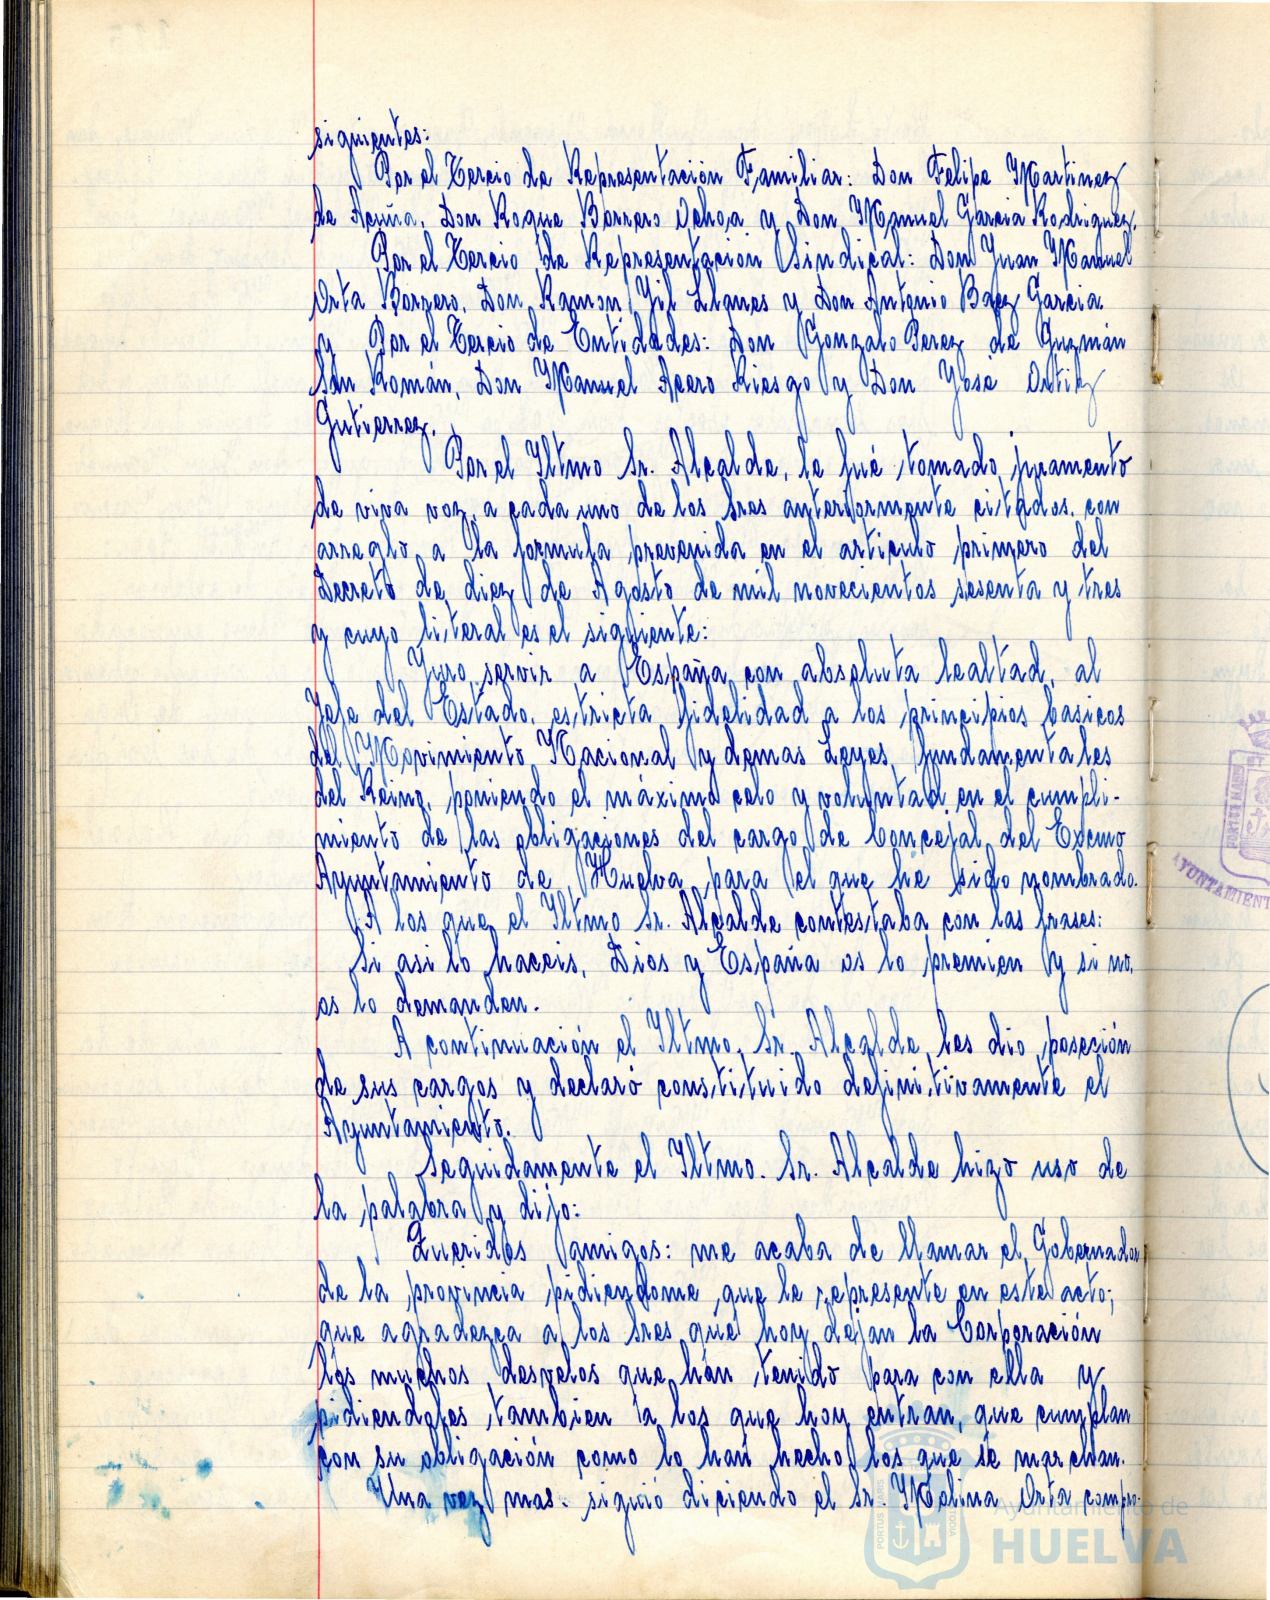 siguientes:
Por el Tercio de Representación Familiar: Don Felipe Martinez
de Acuña, Don Roque Barrero Ochoa y Don Manuel Garcia Rodriguez.
Por el Tercio de Representación Sindical: Don Juan Manuel
Orta Borrero, Don Ramon Gil Llanes y Don Antonio Baez Garcia.
y Por el Tercio de Entidades: Don Gonzalo Perez de Guzmán
San Román, Don Manuel Acero Riesgo y Don José Ortiz
Gutierrez.
Por el Iltmo Sr. Alcalde, le fué tomado juramento
de viva voz, a cada uno de los Sres anteriormente citados, con
arreglo a la formula prevenida en el articulo primero del
Decreto de diez de Agosto de mil novecientos sesenta y tres
y cuyo literal es el siguiente:
Juro servir a España con absoluta lealtad, al
Jefe del Estado, estricta fidelidad a los principios basicos
del Movimiento Nacional y demas Leyes fundamentales
del Reino, poniendo el máximo celo y voluntad en el cumpli-
miento de las obligaciones del cargo de Concejal del Excmo
Ayuntamiento de Huelva para el que he sido nombrado.
A los que el Iltmo Sr. Alcalde contestaba con las frases:
Si asi lo haceis, Dios y España os lo premien y si no,
os lo demanden.
A continuación el Iltmo. Sr. Alcalde les dio poseción
de sus cargos y declaró constituido definitivamente el
Ayuntamiento.
Seguidamente el Iltmo. Sr. Alcalde hizo uso de
la palabra y dijo:
Queridos amigos: me acaba de llamar el Gobernador
de la provincia pidiendome que le represente en este acto;
que agradezca a los Sres que hoy dejan la Corporación
los muchos desvelos que han tenido para con ella y
pidiendoles tambien a los que hoy entran, que cumplan
con su obligación como lo han hecho los que se marchan.
Una vez mas. siguió diciendo el Sr. Molina Orta compro-
Ayuntamiento de
HUELVA